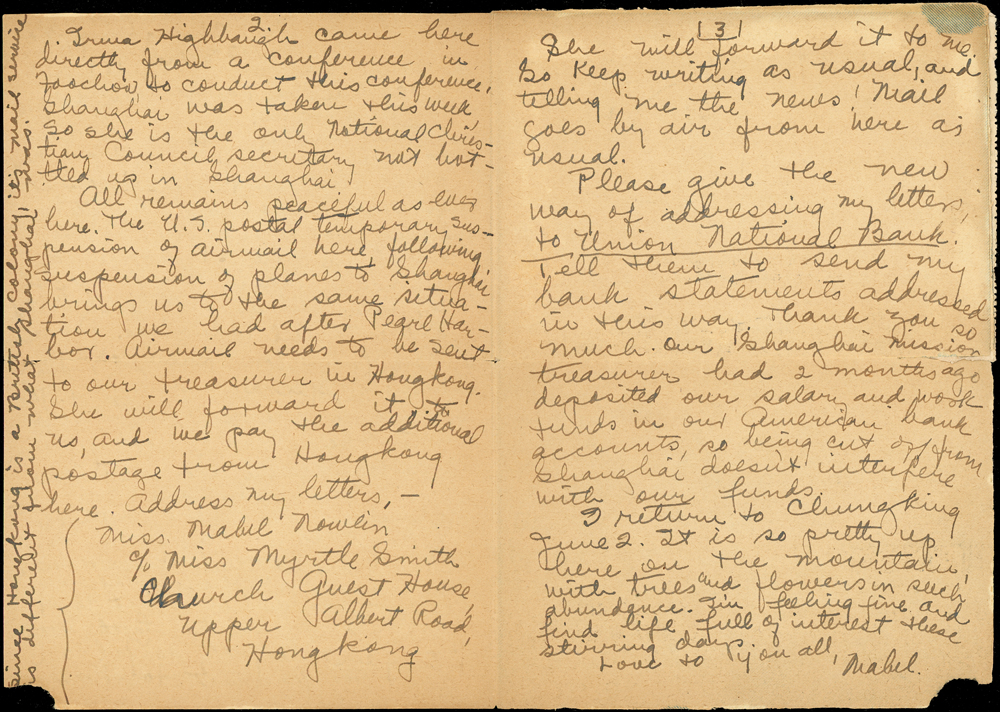 2.
Irma Highbaugh came here
directly from a conference in
Foochow to conduct this conference.
Shanghai was taken this week,
so she is the only National Chris-
tian Council secretary not bot-
tled up in Shanghai.
All remains peaceful as ever
here. The U.S. postal temporary sus-
pension of airmail here following
suspension of planes to Shanghai
brings us to the same situa-
tion we had after Pearl Har-
bor. Airmail needs to be sent
to our treasurer in Hongkong.
She will forward it to
us, and we pay the additional
postage from Hongkong
here. Address my letters, —
Miss Mabel Nowlin
c/o Miss Myrtle Smith
Church Guest House,
Upper Albert Road,
Hongkong
Since Hongkong is a British colony its mail service
is different from what Shanghai was.
3
She will forward it to me.
So keep writing as usual, and
telling me the news! Mail
goes by air from here as
usual.
Please give the new
way of addressing my letters,
to Union National Bank.
Tell them to send my
bank statements addressed
in this way. Thank you so
much. Our Shanghai mission
treasurer had 2 months ago
deposited our salary and work
funds in our American bank
accounts, so being cut off from
Shanghai doesn't interfere
with our funds.
I return to Chungking
June 2. It is so pretty up
here on the mountain,
with trees and flowers in such
abundance. I'm feeling fine and
find life full of interest these
stirring days.
Love to you all,
Mabel.